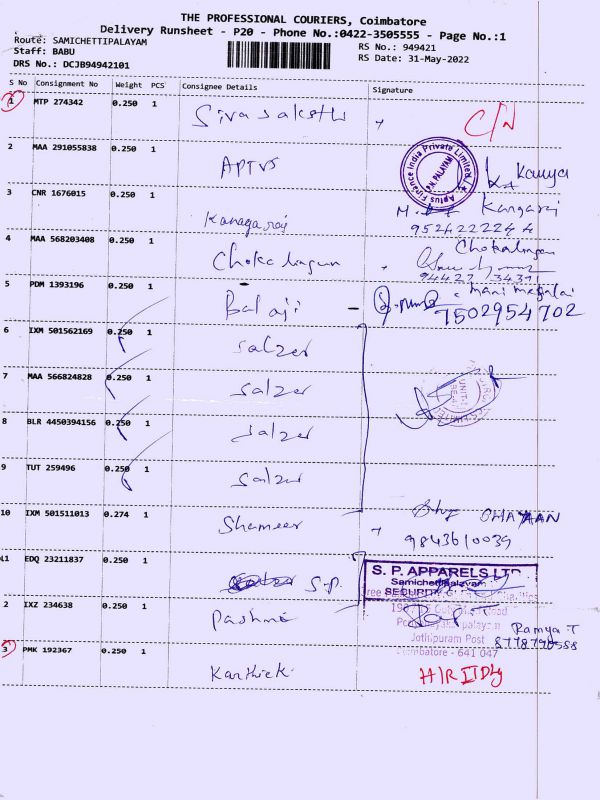 THE PROFESSIONAL COURIERS, Coimbatore
Delivery Runsheet - P20 - Phone No.:0422-3505555 - Page No.:1
Route: SAMICHETTIPALAYAM
RS No.: 949421
Staff: BABU
RS Date: 31-May-2022
DRS No.: DCJB94942101
S No Consignment No Weight PCS Consignee Details Signature
1 MTP 274342 0.250 1 Sivasakthi C/N
2 MAA 291055838 0.250 1 APTUS Kaniya
Aptus Finance India Private Limited
P.N. PALAYAM
3 CNR 1676015 0.250 1 Kanagaraj M. Kangaraj
9524222244
4 MAA 568203408 0.250 1 Chokalingam Chokalingam
94427 34371
5 PDM 1393196 0.250 1 Balaji
7502954702
6 IXM 501562169 0.250 1 salzer
7 MAA 566824828 0.250 1 salzer
8 BLR 4450394156 0.250 1 salzer
9 TUT 259496 0.250 1 salzer
10 IXM 501511013 0.274 1 Shameer
9843610039
11 EDQ 23211837 0.250 1 S.P.
S. P. APPARELS LTD
Samichettipalayam
SECURITY
2 IXZ 234638 0.250 1
Jothipuram Post
Coimbatore - 641 047
Ramya T
8778790558
3 PMK 192367 0.250 1 Karthick